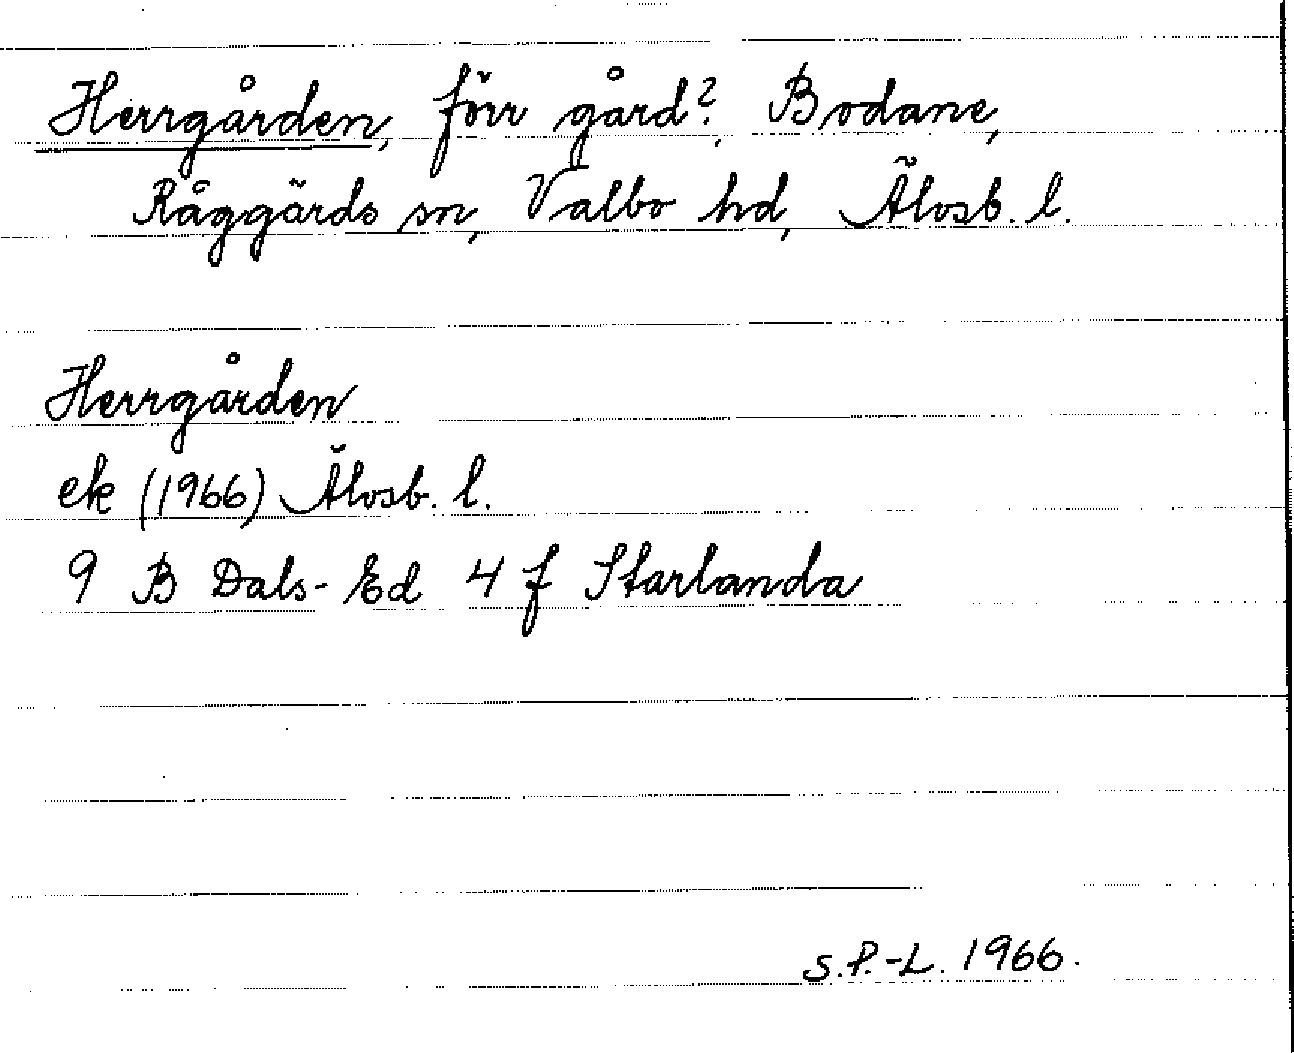 Herrgården, förr gård?, Bodane,
Råggärds sn, Valbo hd, Älvsb. l.
Herrgården
ek (1966) Älvsb. l.
9 B Dals-Ed 4 f Starlanda
S.P.-L. 1966.